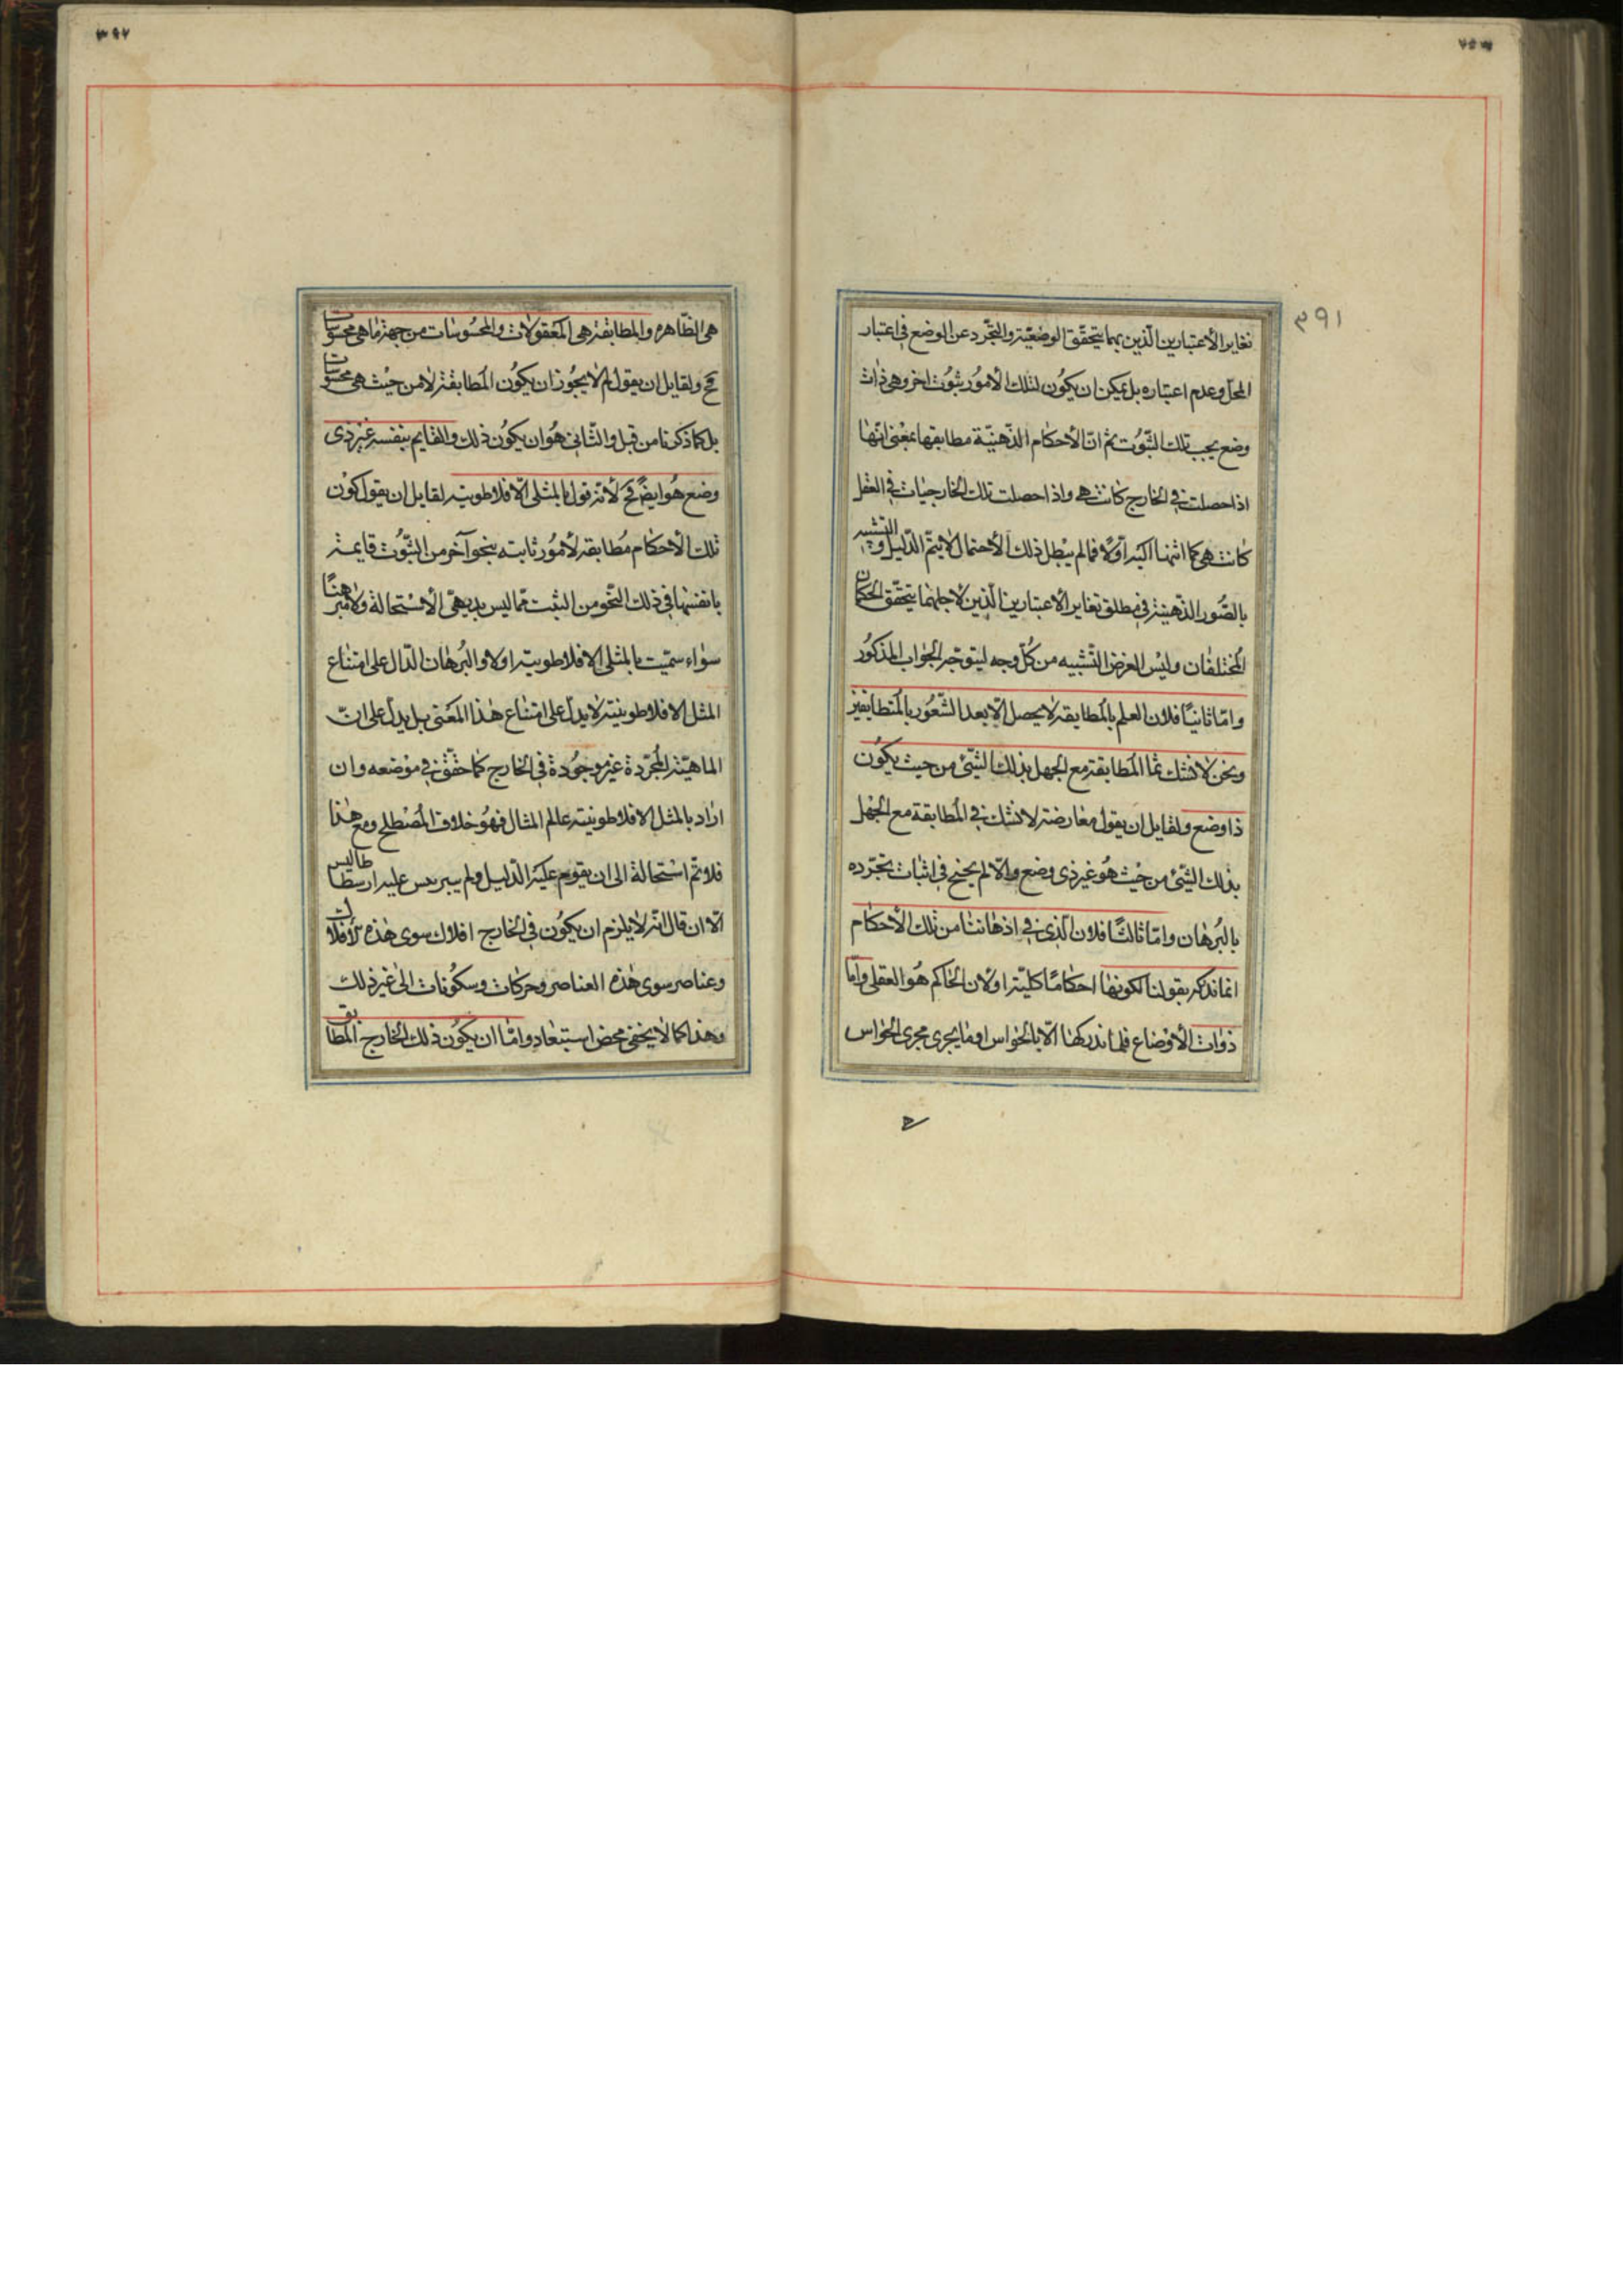 ٣٩١
تغاير الأعتبارين الّذين بهما يتحقّق الوضعيّة والتجّرد عن الوضع فى اعتبار
المحلّ وعدم اعتباره بل يمكن ان يكون لتلك الأمور ثبوت اخر وهى ذات
وضع بحسب تلك الثّبوت ثم انّ الأحكام الذّهنيّة مطابقها بمعنى انّها
اذا حصلت فى الخارج كانت هى واذا حصلت تلك الخارجيات فى العقل
كانت هى كما اشرنا اليه اوّلا فما لم يبطل ذلك الأحتمال لا يتمّ الدّليل والتشبيه
بالصّور الذّهنيّة فى مطلق تغاير الاعتبارين الّذين لأجلهما يتحقّق الحكمان
المختلفان وليس الغرض التّشبيه من كلّ وجه ليتوجّه الجواب المذكور
وامّا ثانيًا فلان العلم بالمطابقة لا يحصل الّا بعد الشّعور بالمتطابقين
ونحن لا نشك فى المطابقة مع الجهل بذلك الشّئ من حيث يكون
ذا وضع ولقايل ان يقول معارضة لا نشك فى المطابقة مع الجهل
بذلك الشّئ من حيث هو غير ذى وضع والّا لم يحتج فى اثبات تجرّده
بالبرهان وامّا ثالثًا فلان الّذى فى اذهاننا من تلك الأحكام
انما ندركه بقولنا لكونها احكامًا كليّة او لان الحاكم هو العقل وامّا
ذوات الأوضاع فلا ندركها الّا بالحواس او ما يجرى مجرى الحواس
٣٩٢
هى الظّاهرة والمطابقة هى المعقولات والمحسوسات من جهة ما هى محسوسات
مح ولقايل ان يقول لم لا يجوز ان يكون المطابقة لا من حيث هى محسوسات
بل كما ذكرنا من قبل والثّانى هو ان يكون ذلك والقايم بنفسه غير ذى
وضع هو ايضًا مح لأنه قول بالمثل الافلاطونيه لقايل ان يقول كون
تلك الأحكام مطابقة لأمور ثابته بنحو آخر من الثّبوت قايمة
بانفسها فى ذلك النّحو من الثبت مما ليس بديهى الأستحالة ولا مبرهنًا
سواء سمّيت بالمثل الافلاطونية او لا والبرهان الدّال على امتناع
المثل الافلاطونية لا يدلّ على امتناع هذا المعنى بل يدلّ على انّ
الماهيّة المجرّدة غير موجودة فى الخارج كما حقّق فى موضعه وان
اراد بالمثل الافلاطونية عالم المثال فهو خلاف المصطلح ومع هذا
فلا تم استحالة الى ان يقوم عليه الدّليل ولم يبرهن عليه ارسطاطاليس
الّا ان قال انّه لا يلزم ان يكون فى الخارج افلاك سوى هذه الأفلاك
وعناصر سوى هذه العناصر وحركات وسكونات الى غير ذلك
وهذا كما لا يخفى محض استبعاد وامّا ان يكون ذلك الخارج المطابق